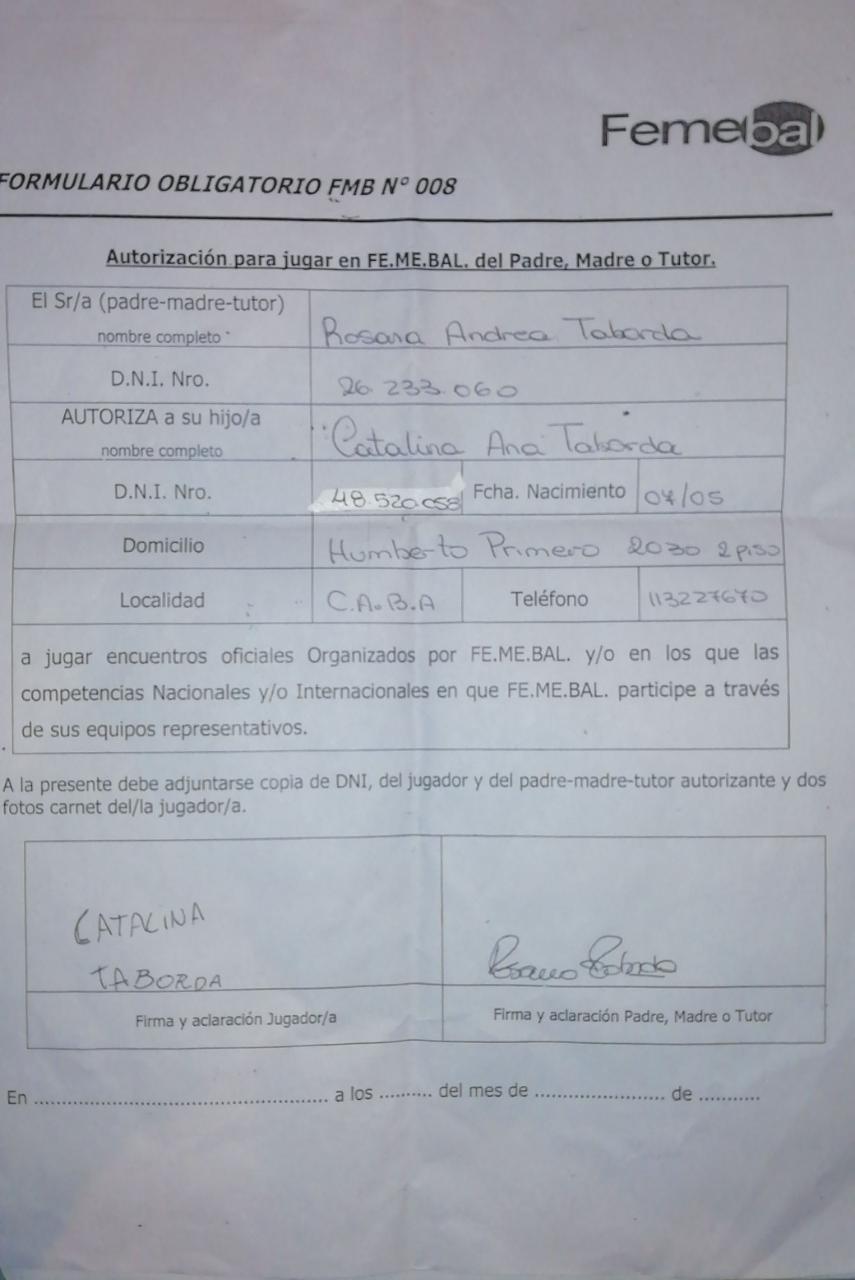 Femebal
FORMULARIO OBLIGATORIO FMB N° 008
Autorización para jugar en FE.ME.BAL. del Padre, Madre o Tutor.
El Sr/a (padre-madre-tutor)
nombre completo
Rosana Andrea Taborda
D.N.I. Nro.
26.233.060
AUTORIZA a su hijo/a
nombre completo
Catalina Ana Taborda
D.N.I. Nro.
48.520.058
Fcha. Nacimiento
04/05
Domicilio
Humberto Primero 2030 2 piso
Localidad
C.A.B.A
Teléfono
113227670
a jugar encuentros oficiales Organizados por FE.ME.BAL. y/o en los que las
competencias Nacionales y/o Internacionales en que FE.ME.BAL. participe a través
de sus equipos representativos.
A la presente debe adjuntarse copia de DNI, del jugador y del padre-madre-tutor autorizante y dos
fotos carnet del/la jugador/a.
CATALINA
TABORDA
Firma y aclaración Jugador/a
Firma y aclaración Padre, Madre o Tutor
En ................................................ a los ......... del mes de ...................... de ...........